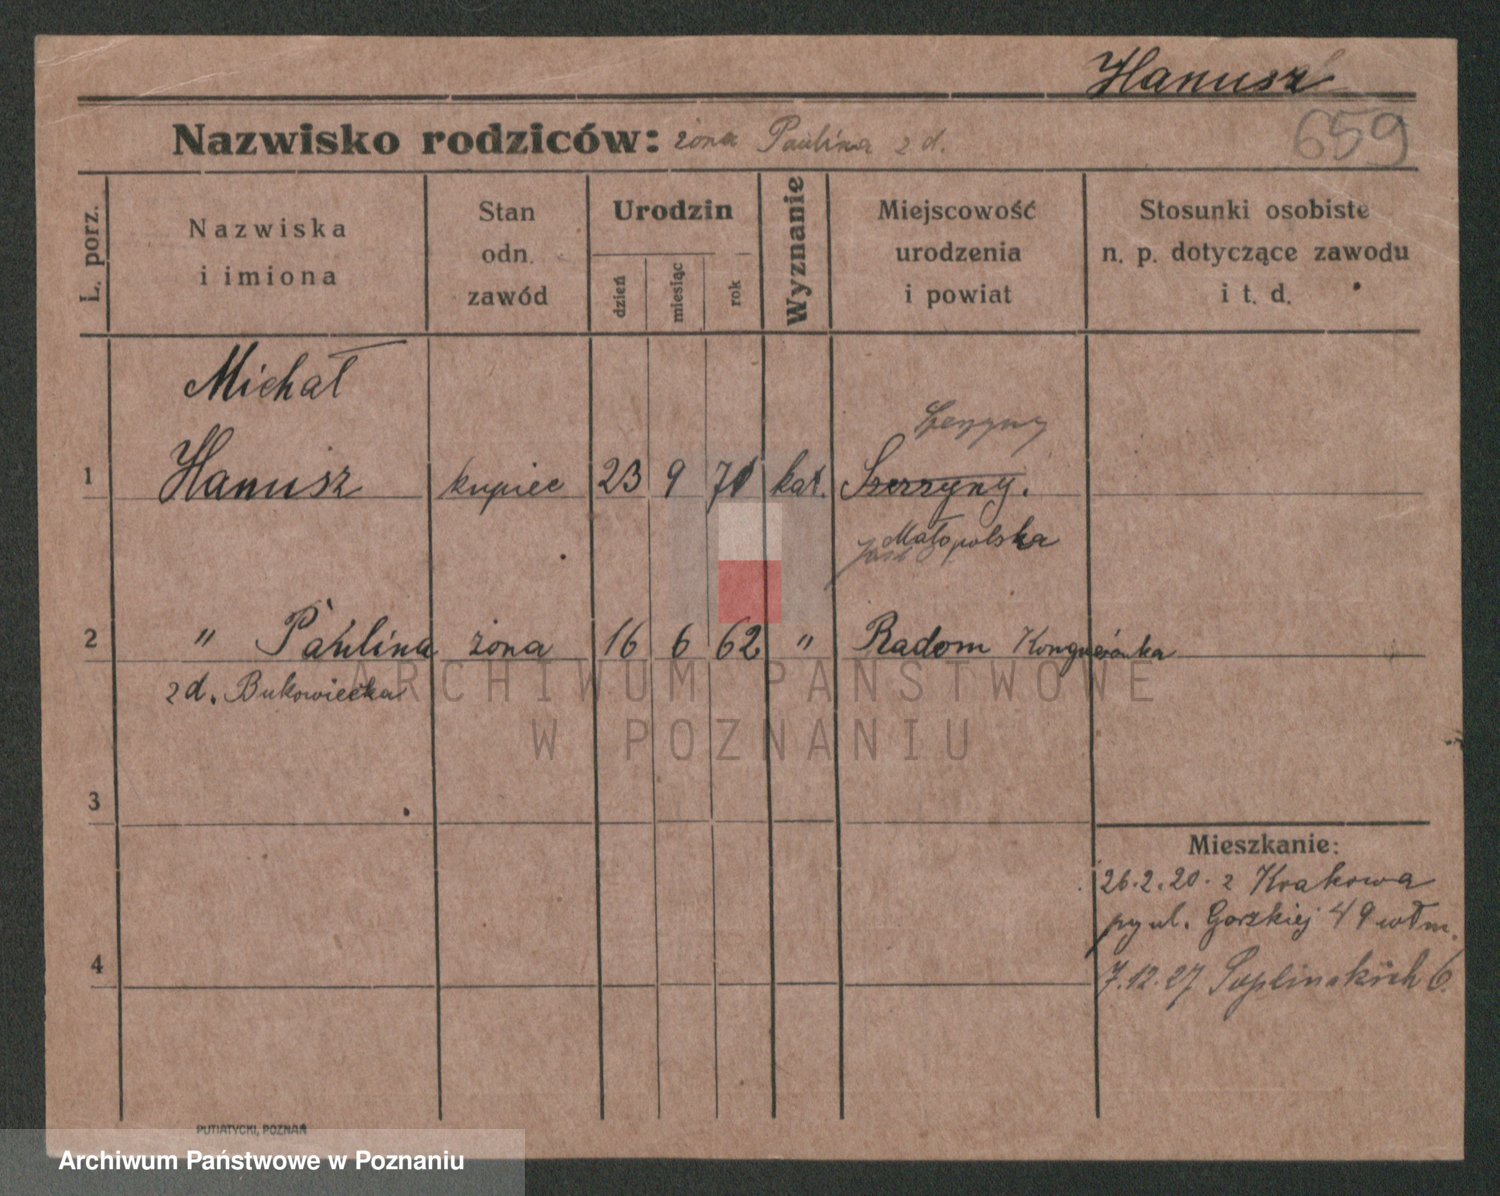 Hanusz
Nazwisko rodziców: żona Paulina z d.
659
L. porz.
Nazwiska
i imiona
Stan
odn.
zawód
Urodzin
dzień
miesiąc
rok
Wyznanie
Miejscowość
urodzenia
i powiat
Stosunki osobiste
n. p. dotyczące zawodu
i t. d.
Michał
Szerzyny
1 Hanusz kupiec 23 9 71 kat. Szerzyny.
Małopolska
2 " Paulina żona 16 6 62 " Radom Kongresówka
z d. Bukowiecka
ARCHIWUM PAŃSTWOWE
W POZNANIU
3
Mieszkanie:
26.2.20. z Krakowa
py ul. Gorzkiej 49
4
7.12.27 6.
PUTIATYCKI, POZNAŃ
Archiwum Państwowe w Poznaniu